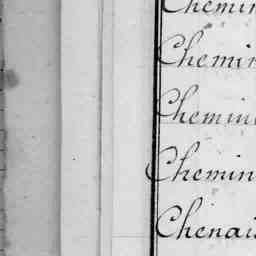 Chemin
Chemin
Chemin
Chemin
Chenais